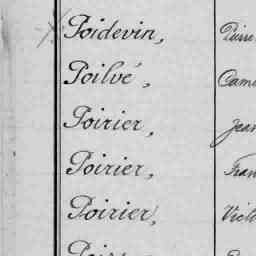 Poidevin, Pierre
Poilvé, Cam
Poirier, Jean
Poirier, Fran
Poirier, Vict